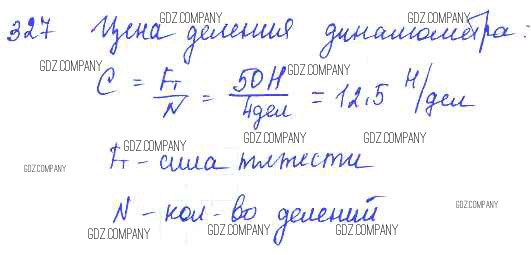 GDZ.COMPANY GDZ.COMPANY
327 Цена деления динамометра:
GDZ.COMPANY GDZ.COMPANY
C = Fт/N = 50 Н/4 дел = 12,5 Н/дел
GDZ.COMPANY GDZ.COMPANY GDZ.COMPANY
Fт - сила тяжести
GDZ.COMPANY
N - кол-во делений
GDZ.COMPANY
GDZ.COMPANY GDZ.COMPANY GDZ.COMPANY